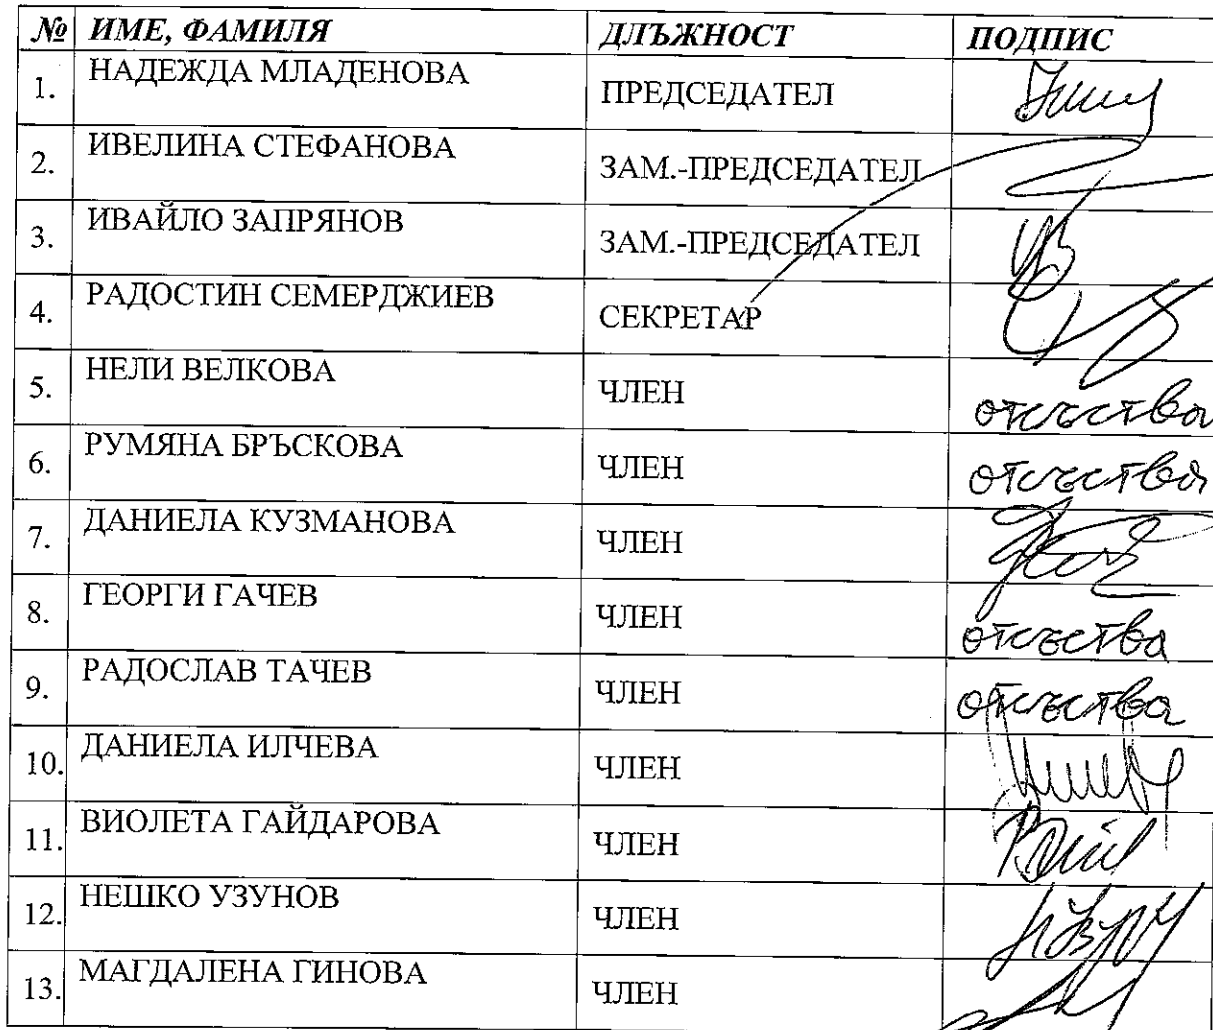 № ИМЕ, ФАМИЛЯ ДЛЪЖНОСТ ПОДПИС
1. НАДЕЖДА МЛАДЕНОВА ПРЕДСЕДАТЕЛ
2. ИВЕЛИНА СТЕФАНОВА ЗАМ.-ПРЕДСЕДАТЕЛ
3. ИВАЙЛО ЗАПРЯНОВ ЗАМ.-ПРЕДСЕДАТЕЛ
4. РАДОСТИН СЕМЕРДЖИЕВ СЕКРЕТАР
5. НЕЛИ ВЕЛКОВА ЧЛЕН отсъства
6. РУМЯНА БРЪСКОВА ЧЛЕН отсъства
7. ДАНИЕЛА КУЗМАНОВА ЧЛЕН
8. ГЕОРГИ ГАЧЕВ ЧЛЕН отсъства
9. РАДОСЛАВ ТАЧЕВ ЧЛЕН отсъства
10. ДАНИЕЛА ИЛЧЕВА ЧЛЕН
11. ВИОЛЕТА ГАЙДАРОВА ЧЛЕН
12. НЕШКО УЗУНОВ ЧЛЕН
13. МАГДАЛЕНА ГИНОВА ЧЛЕН